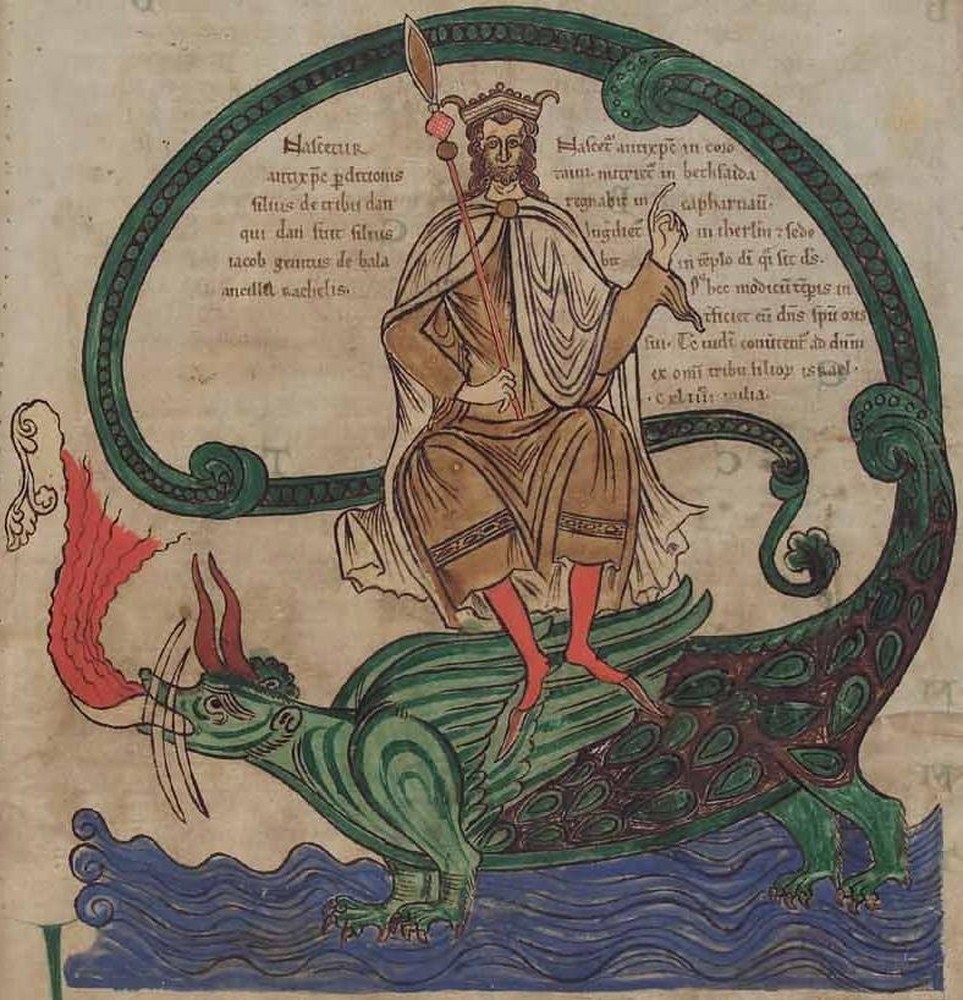 Nascetur
antixp̄c p̄ditionis
filius de tribu dan
qui dan fuit filius
iacob genitus de bala
ancilla rachelis.
Nascet᷑ antixp̄c in coro
zaim. nutriet᷑ in bethsaida
regnabit in capharnaū.
in iherl̄m ⁊ sede
bit in tēplo dī q̄i sit d̄s.
hec modicū tēpis in
tficiet eū dn̄s sp̄u oris
sui. Tc̄ iudī conūtent᷑ ad dn̄m
ex om̄i tribu filioꝝ israel.
.cxliiii. milia.